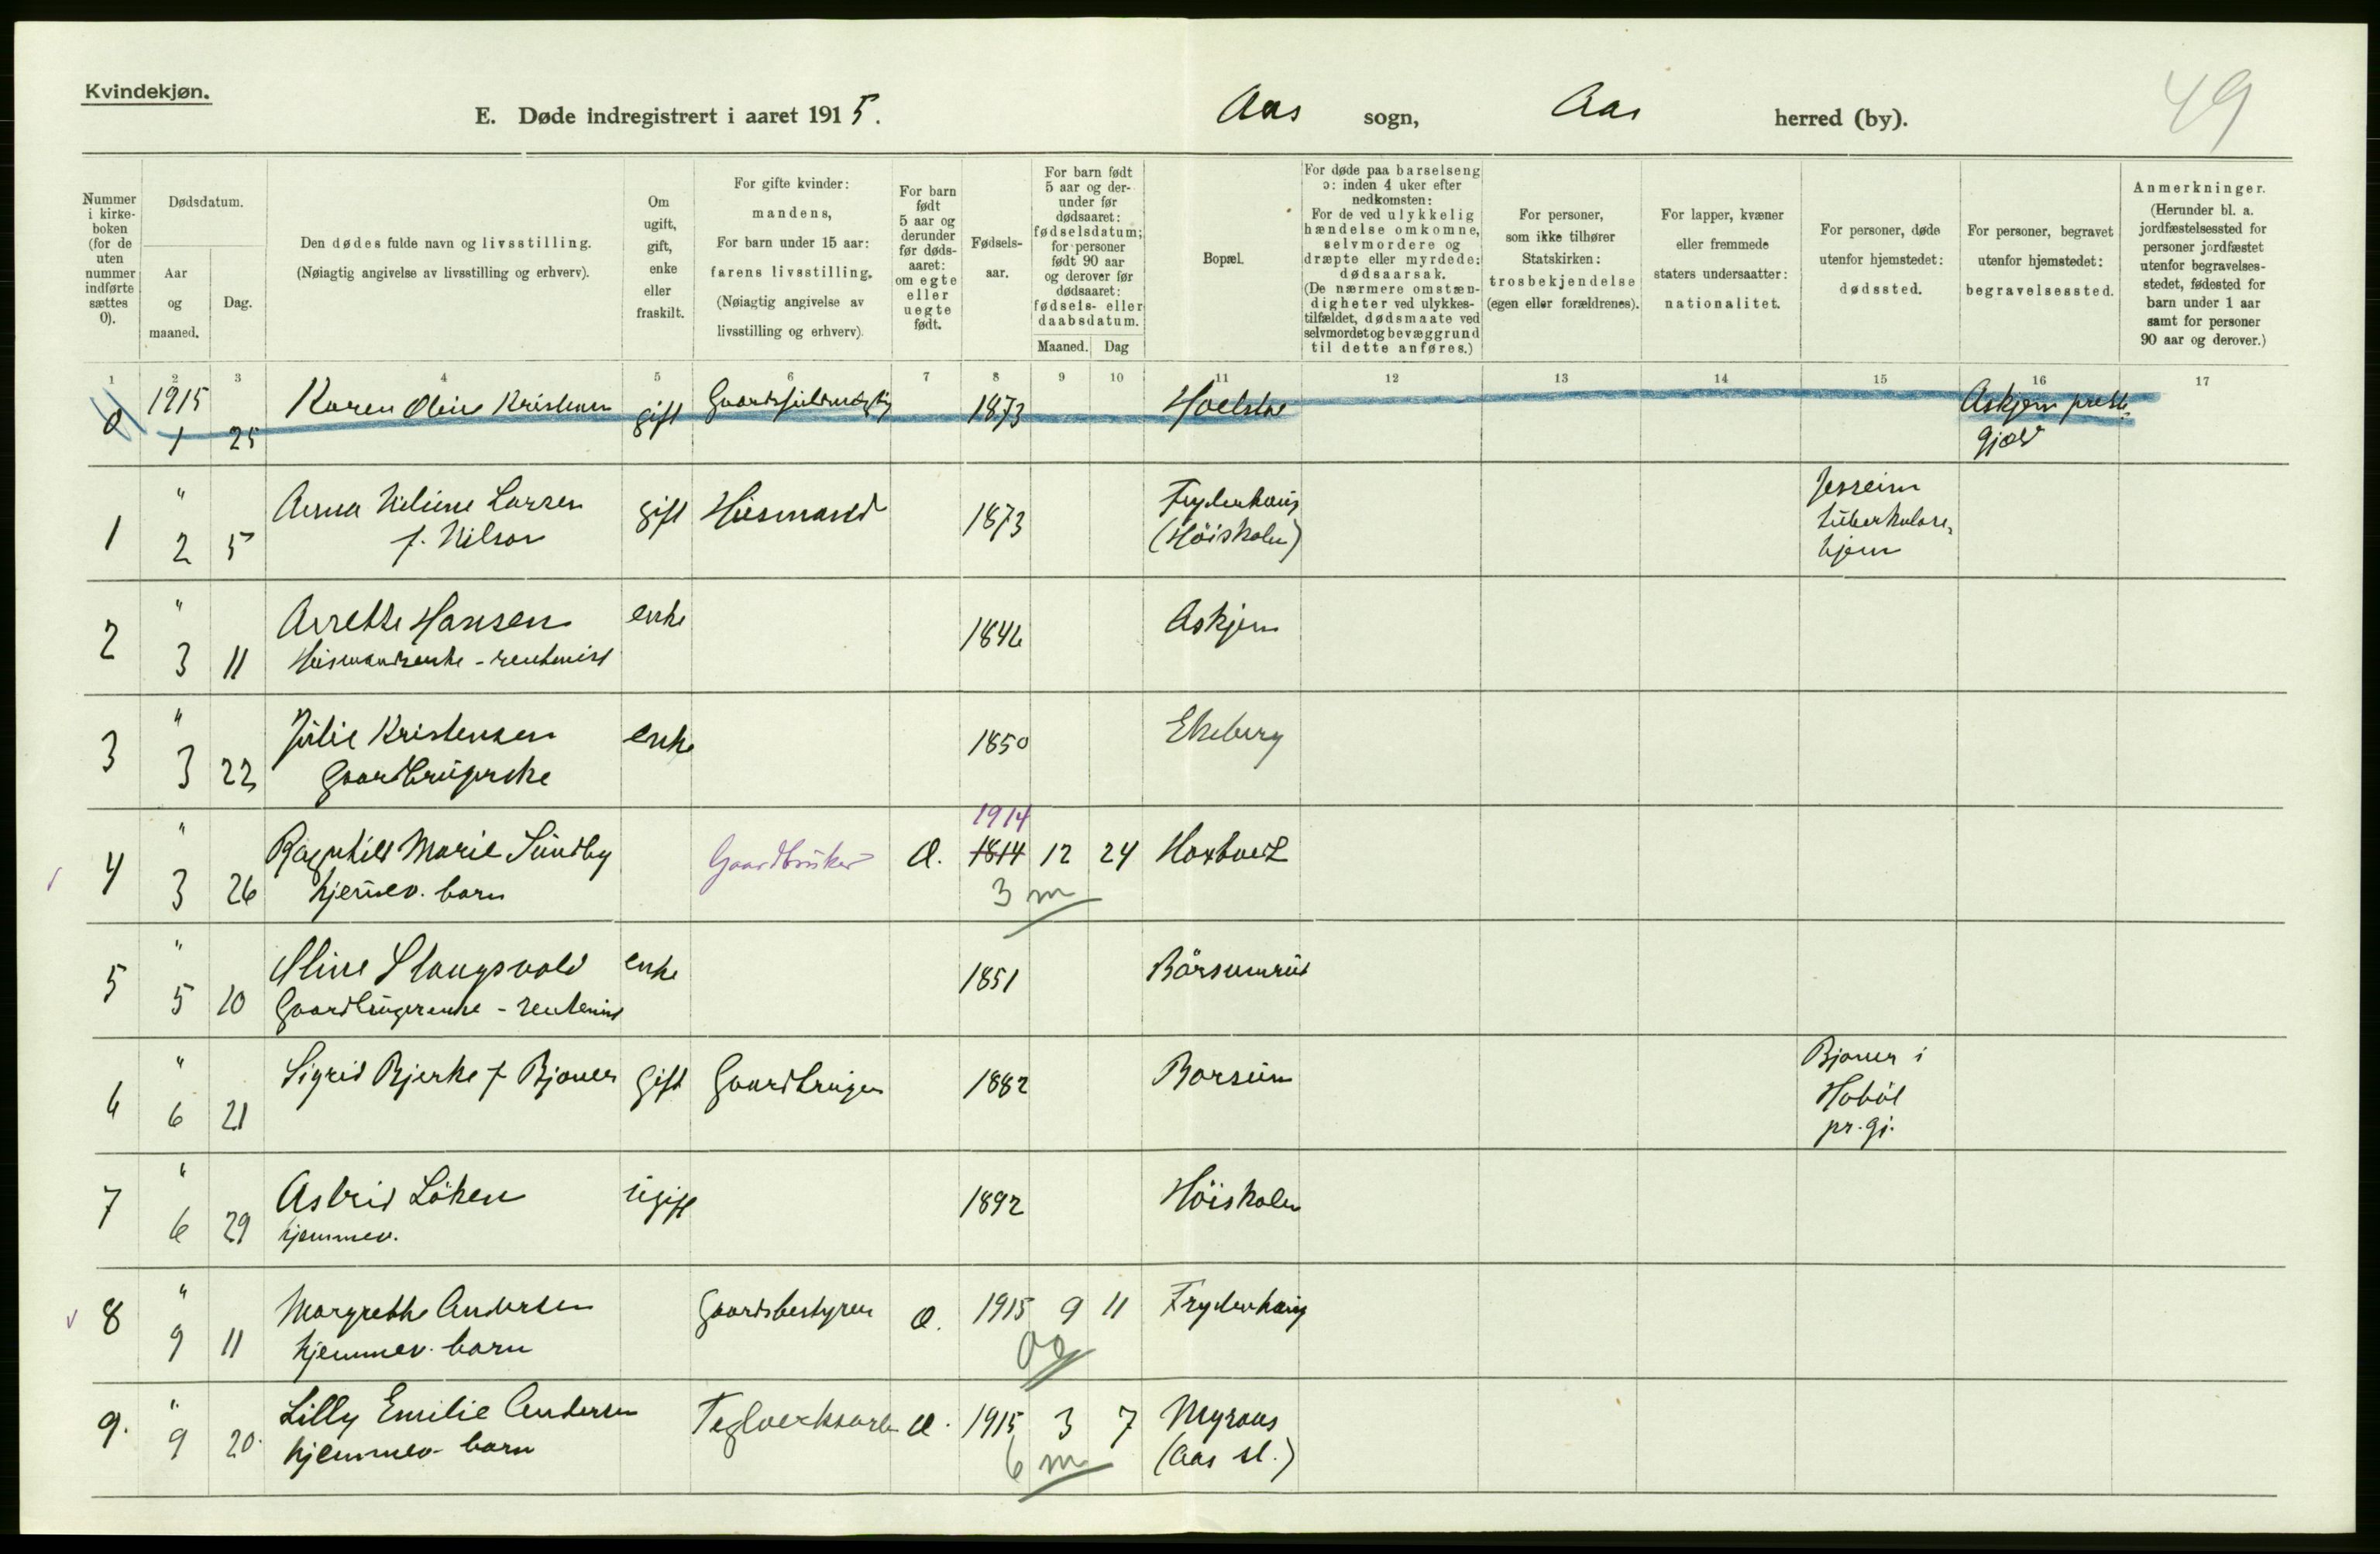 Kvindekjøn.
E. Døde indregistrert i aaret 1915. Aas sogn, Aas herred (by). 49
Nummer i kirke-boken (for de uten nummer indførte sættes 0).
Dødsdatum.
Aar og maaned.
Dag.
Den dødes fulde navn og livsstilling.
(Nøiagtig angivelse av livsstilling og erhverv).
Om ugift, gift, enke eller fraskilt.
For gifte kvinder: mandens,
For barn under 15 aar: farens livsstilling.
(Nøiagtig angivelse av livsstilling og erhverv).
For barn født 5 aar og derunder før døds-aaret: om egte eller uegte født.
Fødsels-aar.
For barn født 5 aar og der-under før dødsaaret: fødselsdatum; for personer født 90 aar og derover før dødsaaret: fødsels- eller daabsdatum.
Maaned. Dag
Bopæl.
For døde paa barselseng ɔ: inden 4 uker efter nedkomsten:
For de ved ulykkelig hændelse omkomne, selvmordere og dræpte eller myrdede: dødsaarsak.
(De nærmere omstæn-digheter ved ulykkes-tilfældet, dødsmaate ved selvmordet og bevæggrund til dette anføres.)
For personer, som ikke tilhører Statskirken: trosbekjendelse (egen eller forældrenes).
For lapper, kvæner eller fremmede staters undersaatter: nationalitet.
For personer, døde utenfor hjemstedet: dødssted.
For personer, begravet utenfor hjemstedet: begravelsessted.
Anmerkninger.
(Herunder bl. a. jordfæstelsessted for personer jordfæstet utenfor begravelses-stedet, fødested for barn under 1 aar samt for personer 90 aar og derover.)
1 2 3 4 5 6 7 8 9 10 11 12 13 14 15 16 17
0 1915 Karen Oline Kristensen gift 1873 Askjem preste-
1 25 gjæld
1 " Anna Nilsine Larsen gift Husmand 1873 Frydenhaug
2 5 f. Nilsen (Höiskolen)
Jesseim
tuberkulose-
hjem
2 " Anette Hansen enke 1846 Askjem
3 11 Husmandsenke - rentenist
3 " Julie Kristensen enke 1850 Ekeberg
3 22 Gaardbrugerske
1914
4 " Ragnhild Marie Sundby Gaardbruker Æ. 1814 12 24
3 26 hjemmev. barn 3 m
5 " enke 1851 Börsumrud
5 10 Gaardbrugerenke - rentenist
6 " Sigrid Bjerke f Bjoner Gift Gaardbruger 1882 Borsum
6 21
Bjoner i
Hoböl
pr.gj.
7 " Astrid Löken ugift 1892 Höiskolen
6 29 hjemmev.
8 " Margrethe Andersen Gaardsbestyrer Æ. 1915 9 11 Frydenhaug
9 11 hjemmev. barn 0 g
9. " Lilly Emilie Andersen Teglverksarb. Æ. 1915 3 7 Myraas
9 20. hjemmev. barn 6 m (Aas st.)